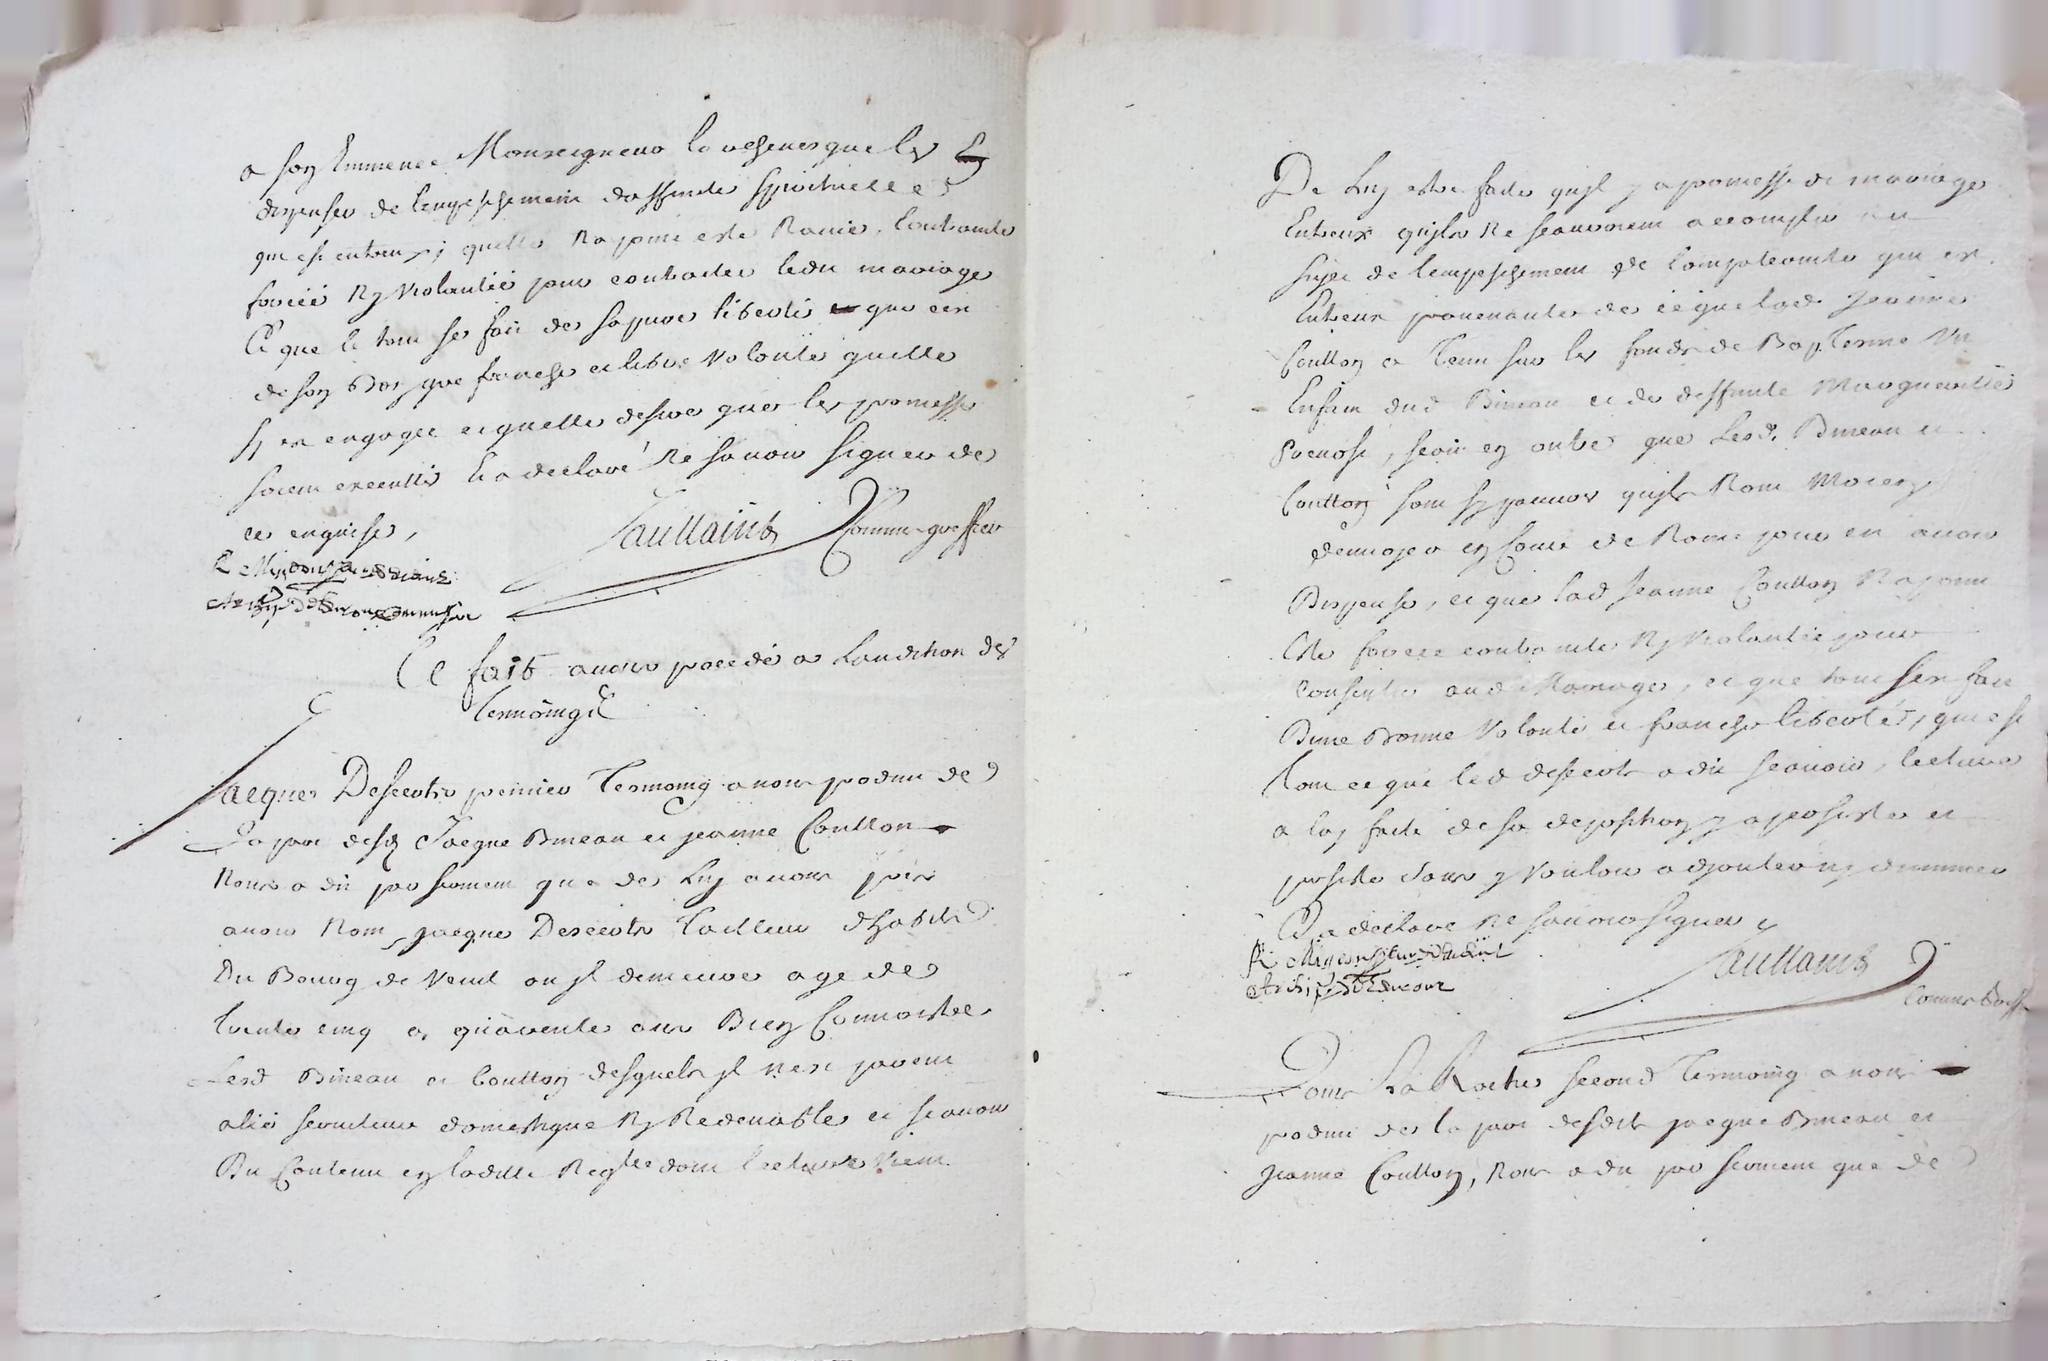 a son Eminence Monseigneur l'archevesque les
dispenser de lempeschement daffinité spirituelle et
qui est entreux, quelle na point esté Ravie, Contrainte
forcéé Ny violantéé pour contracter ledit mariage
Et que le tout se fait de sa pure liberté que cest
de son bon gre franche et libre volonté quelle
sy est engagee et quelle desire que les promesses
soient executtés Et a declaré Ne savoir signer de
ce enquise,
Saullaint Comme greffier
Ce fait avons procedé a Laudition des
Temoings
Jacques Descerts premier Temoing a nous produit de
La part desd Jacque Bineau et jeanne Coutton
Nous a dit par serment que de Luy avons pris
avoir Nom Jacque Descerts Tailleur dhabits
Du Bourg de Venit ou jl demeure agé de
trente cinq a quarente ans Bien Connoistre
Lesd Bineau et Coutton desquels jl nest parent
alié serviteur domestique Ny Redevable et scavoir
Du Contenu en ladite Reqte dont lecture vient
De Luy estre faite qujl y a promesse de mariage
Entreux qujls Ne scauroient accomplir au
sujet de lempeschement de Compaternité qui est
Entreux provenante de ce que lad. Jeanne
Coutton a Tenu sur les fonds de Baptesme Un
Enfant dud Bineau et de deffunte Margueritte
Prevost, scait en outre que Lesd. Bineau et
Coutton sont sy pauvres qujls Nont Moien
denvoyer en Cour de Rome pour en avoir
Dispense, et que lad Jeanne Coutton Na point
Esté forcee contrainte Ny violantéé pour
Consentir aud Mariage, et que tout sen fait
Dune Bonne Volonté et franche liberté, qui est
tout ce que led descerts a dit scavoir, lecture
a luy faite de sa deposition y a persisté et
persiste sans y Vouloir adjouter ny diminuer
Et a declaré Ne savoir signer
Saullaint
Comme Greff
Louis La Roche second Temoing a nous
produit de la part desdits jacque Bineau et
Jeanne Coutton, Nous a dit par serment que de